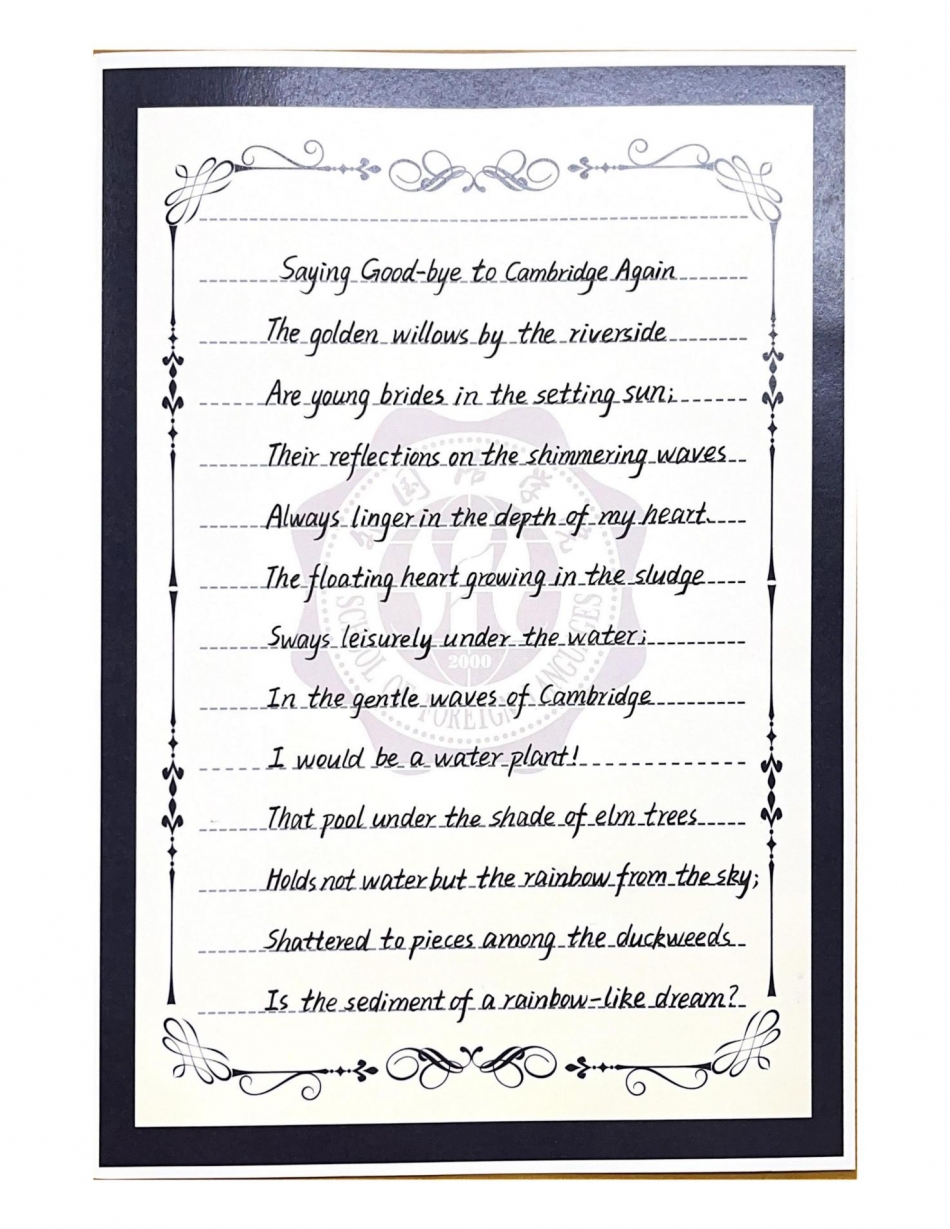 Saying Good-bye to Cambridge Again
The golden willows by the riverside
Are young brides in the setting sun;
Their reflections on the shimmering waves
Always linger in the depth of my heart.
The floating heart growing in the sludge
Sways leisurely under the water;
In the gentle waves of Cambridge
I would be a water plant!
That pool under the shade of elm trees
Holds not water but the rainbow from the sky;
Shattered to pieces among the duckweeds
Is the sediment of a rainbow-like dream?
国 院 学
2000
SCHOOL OF FOREIGN LANGUAGES